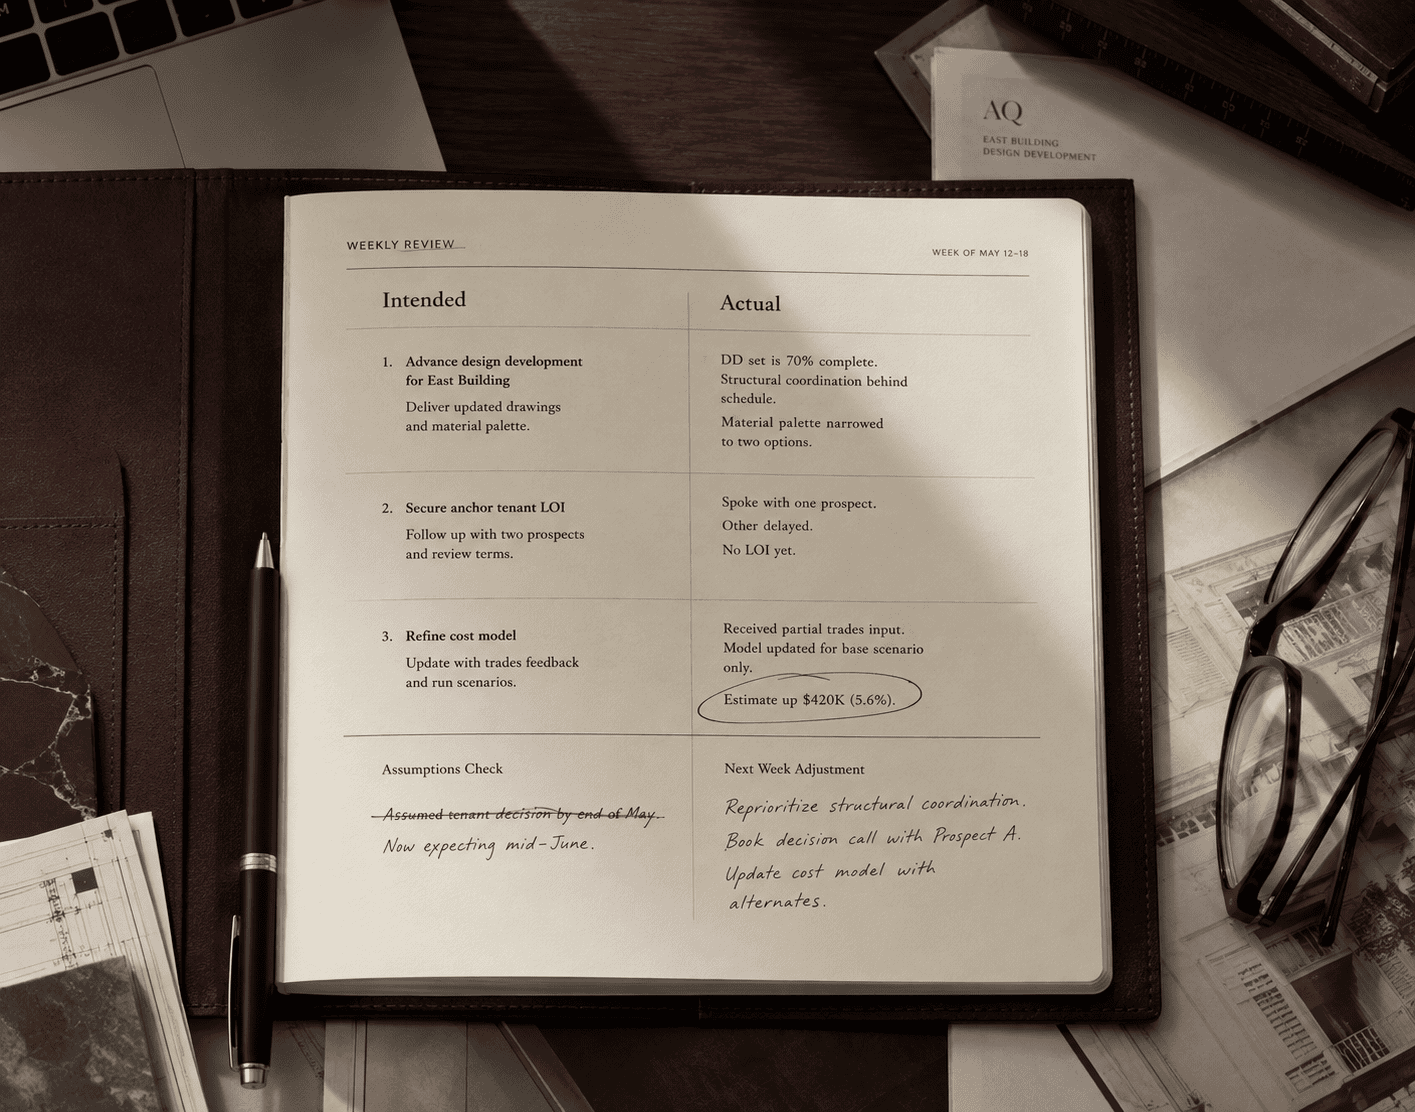 AQ
EAST BUILDING
DESIGN DEVELOPMENT
WEEKLY REVIEW
WEEK OF MAY 12–18
Intended
Actual
1. Advance design development
for East Building
Deliver updated drawings
and material palette.
DD set is 70% complete.
Structural coordination behind
schedule.
Material palette narrowed
to two options.
2. Secure anchor tenant LOI
Follow up with two prospects
and review terms.
Spoke with one prospect.
Other delayed.
No LOI yet.
3. Refine cost model
Update with trades feedback
and run scenarios.
Received partial trades input.
Model updated for base scenario
only.
Estimate up $420K (5.6%).
Assumptions Check
Assumed tenant decision by end of May.
Now expecting mid-June.
Next Week Adjustment
Reprioritize structural coordination.
Book decision call with Prospect A.
Update cost model with
alternates.